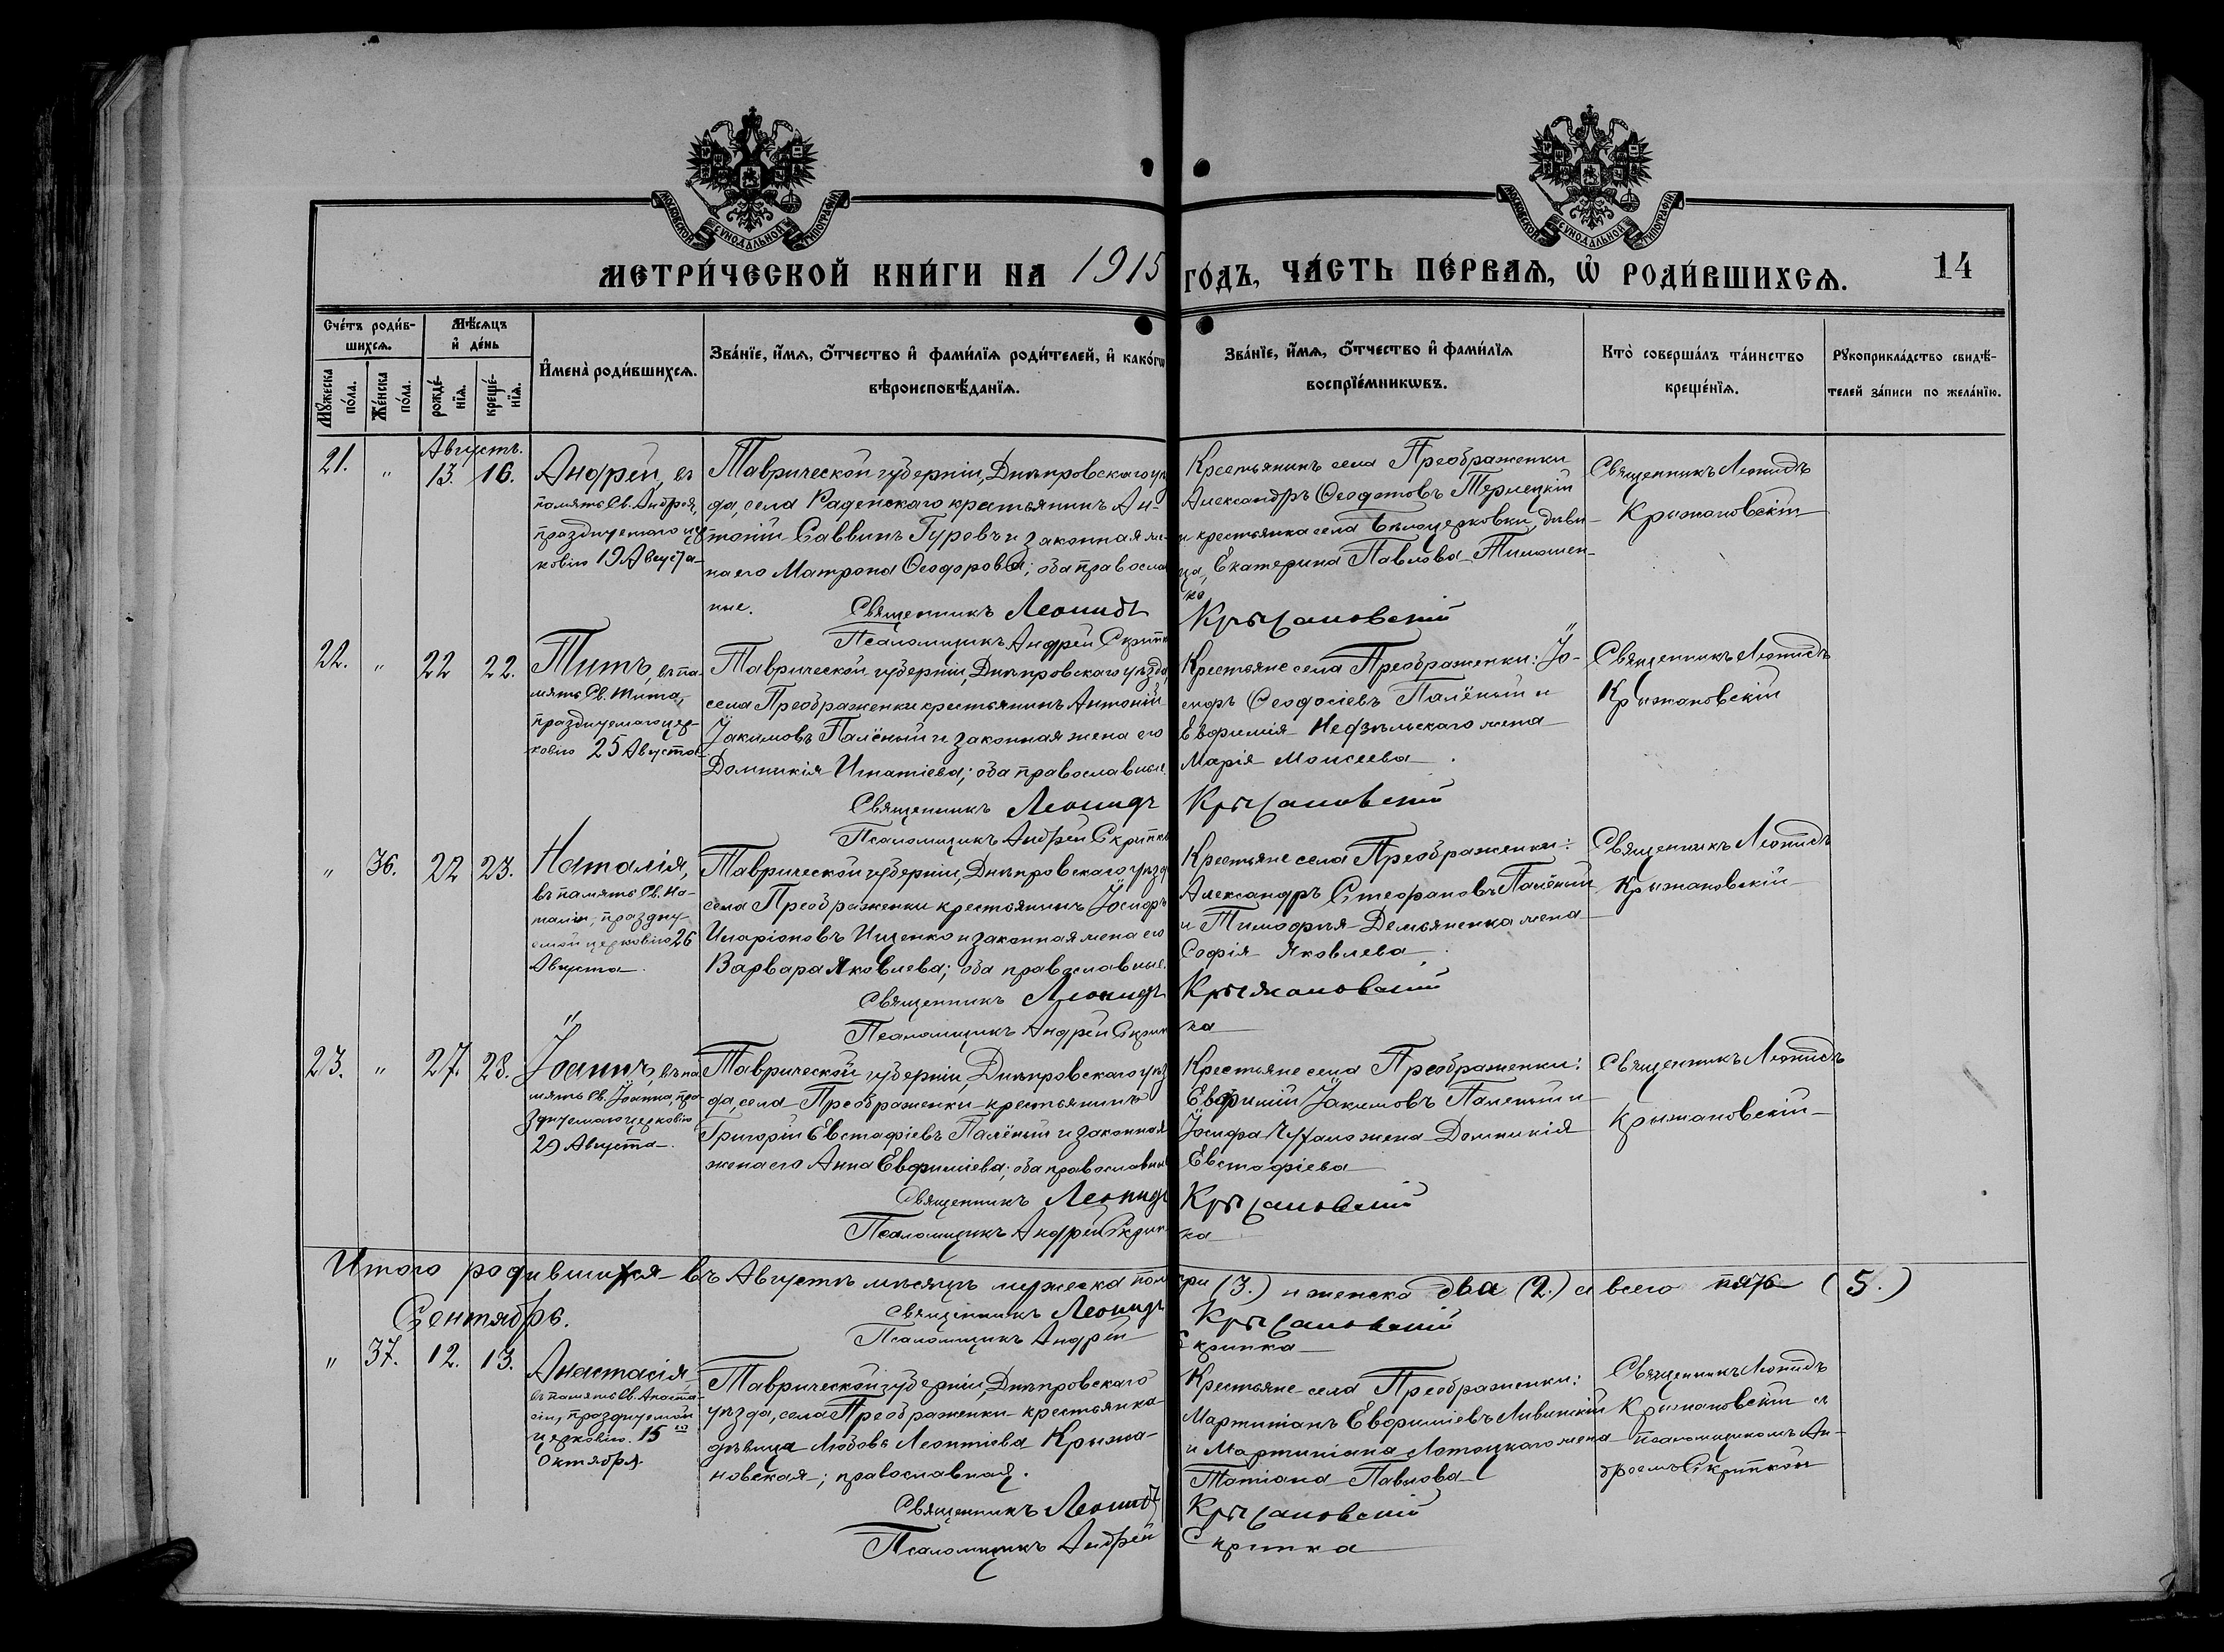 МОСКОВСКОЙ СѴНОДАЛЬНОЙ ТИПОГРАФІИ
МОСКОВСКОЙ СѴНОДАЛЬНОЙ ТИПОГРАФІИ
МЕТРИ́ЧЕСКОЙ КНИ́ГИ НА 1915 ГО́ДЪ, ЧА́СТЬ ПЕ́РВАѦ, Ѡ҆ РОДИ́ВШИХСѦ. 14
Сче́тъ роди́в-
шихсѧ.
Мꙋ́жеска по́ла.
Же́нска по́ла.
Мѣ́сѧцъ
и҆ де́нь
рожде́-
нїѧ.
креще́-
нїѧ.
И҆мена̀ роди́вшихсѧ.
Зва́нїе, и҆́мѧ, ѻ҆́тчество и҆ фами́лїѧ роди́телей, и҆ како́гѡ
вѣроисповѣ́данїѧ.
Зва́нїе, и҆́мѧ, ѻ҆́тчество и҆ фами́лїѧ
воспрїе́мникѡвъ.
Кто̀ соверша́лъ та́инство
креще́нїѧ.
Рꙋкоприкла́дство свидѣ́-
телей за́писи по жела́нїю.
Августъ.
21. " 13. 16.
Андрей, въ
память Св. Андрея,
празднуемаго цер
ковію 19 Августа
Таврической губерніи, Днѣпровскаго уѣз
да, села Раденскаго крестьянинъ Ан-
тоній Саввинъ Гуровъ и законная же-
на его Матрона Ѳеодорова; оба православ
ные.
Священникъ Леонидъ
Псаломщикъ Андрей Скрипк
Крестьянинъ села Преображенки
Александръ Ѳеодотовъ Терлецкій
и крестьянка села Бѣлоцерковки, дѣви-
ца, Екатерина Павлова Тимошен-
ко
Крыжановскій
Священникъ Леонидъ
Крыжановскій
22. " 22 22.
Титъ, въ па-
мять Св. Тита,
празднуемаго цер-
ковію 25 Августа
Таврической губерніи, Днѣпровскаго уѣзда,
села Преображенки крестьянинъ Антоній
Іакимовъ Палёный и законная жена его
Домникія Игнатіева; оба православные.
Священникъ Леонидъ
Псаломщикъ Андрей Скрипка
Крестьяне села Преображенки: Іо-
сифъ Ѳеодосіевъ Палёный и
Евфимія Недзѣльскаго жена
Марія Моисеева
Крыжановскій
Священникъ Леонидъ
Крыжановскій
" 36. 22 23.
Наталія,
въ память Св. На-
таліи, праздну-
емой церковію 26
Августа.
Таврической губерніи, Днѣпровскаго уѣзд
села Преображенки крестьянинъ Іосифъ
Иларіоновъ Ищенко и законная жена его
Варвара Яковлева; оба православные.
Священникъ Леонидъ
Псаломщикъ Андрей Скрип
Крестьяне села Преображенки:
Александръ Стефановъ Палёный
и Тимофея Демьяненка жена
Софія Яковлева.
Крыжановскій
ка
Священникъ Леонидъ
Крыжановскій
23. " 27. 28.
Іоаннъ, въ па
мять Св. Іоанна, пра-
зднуемаго церковію
29 Августа.
Таврической губерніи Днѣпровскаго уѣз
да, села Преображенки крестьянинъ
Григорій Евстафіевъ Палёный и законная
жена его Анна Евфиміева; оба православны
Священникъ Леонидъ
Псаломщикъ Андрей Скрип
Крестьяне села Преображенки:
Евфимій Іакимовъ Паленый и
Іосифа жена Домникія
Евстафіева
Крыжановскій
ка
Священникъ Леонидъ
Крыжановскій
Итого родившихся въ Августѣ мѣсяцѣ мужеска пола три (3.) и женска два (2.) а всего пять (5.)
Священникъ Леонидъ Крыжановскій
Псаломщикъ Андрей Скрипка
Сентябрь.
" 37. 12. 13.
Анастасія
въ память Св. Анаста-
сіи, празднуемой
церковію 15 го
Октября.
Таврической губерніи Днѣпровскаго
уѣзда, села Преображенки крестьянка
дѣвица Любовь Леонтіева Крыжа-
новская; православная.
Священникъ Леонидъ
Псаломщикъ Андрей
Крестьяне села Преображенки:
Мартиніанъ Евфиміевъ Ливинскій
и Мартиніана Лотоцкаго жена
Татіана Павлова
Крыжановскій
Скрипка
Священникъ Леонидъ
Крыжановскій съ
псаломщикомъ Ан-
дреемъ Скрипкой